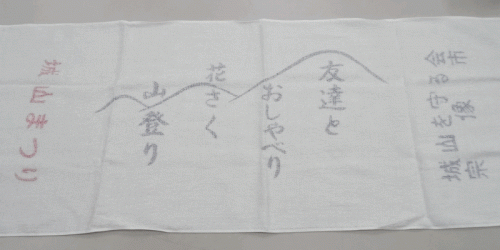 宗像市
城山を守る会
友達と
おしゃべり
花さく
山登り
城山まつり